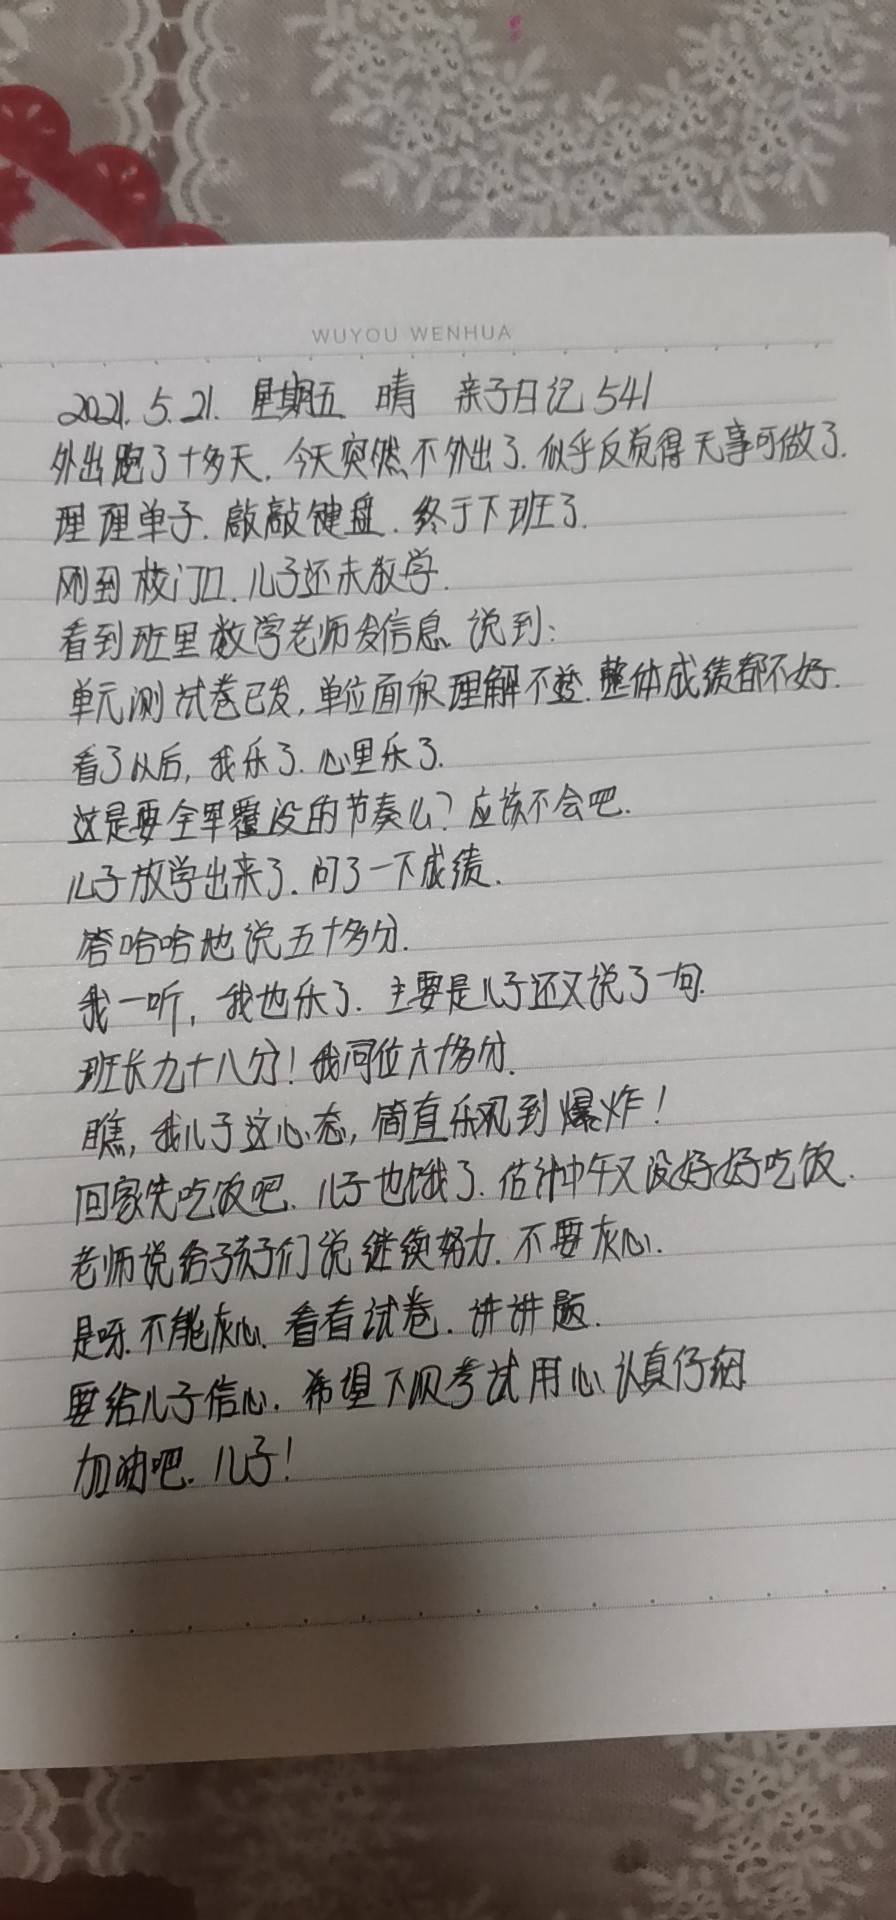 WUYOU WENHUA
2021.5.21. 星期五 晴 亲子日记541
外出跑了十多天.今天突然不外出了.似乎反觉得无事可做了.
理理单子.敲敲键盘.终于下班了.
刚到校门口.儿子还未教学.
看到班里数学老师发信息 说到:
单元测试卷已发,单位面积理解不透.整体成绩都不好.
看了以后,我乐了.心里乐了.
这是要全军覆没的节奏么?应该不会吧.
儿子放学出来了.问了一下成绩.
笑哈哈地说五十多分.
我一听,我也乐了.主要是儿子还又说了一句.
班长九十八分!我同位六十多分.
瞧,我儿子这心态,简直乐观到爆炸!
回家先吃饭吧.儿子也饿了.估计中午又没好好吃饭.
老师说给孩子们说继续努力.不要灰心.
是呀.不能灰心.看看试卷.讲讲题.
要给儿子信心.希望下次考试用心认真仔细
加油吧.儿子!